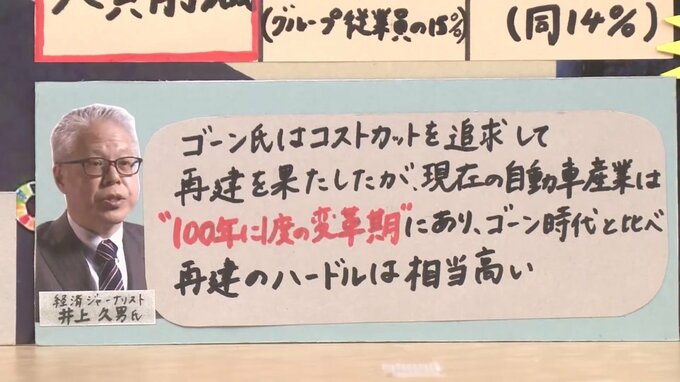 (グループ従業員の15%)
(同14%)
ゴーン氏はコストカットを追求して
再建を果たしたが、現在の自動車産業は
"100年に1度の変革期"にあり、ゴーン時代と比べ
再建のハードルは相当高い
経済ジャーナリスト
井上 久男氏